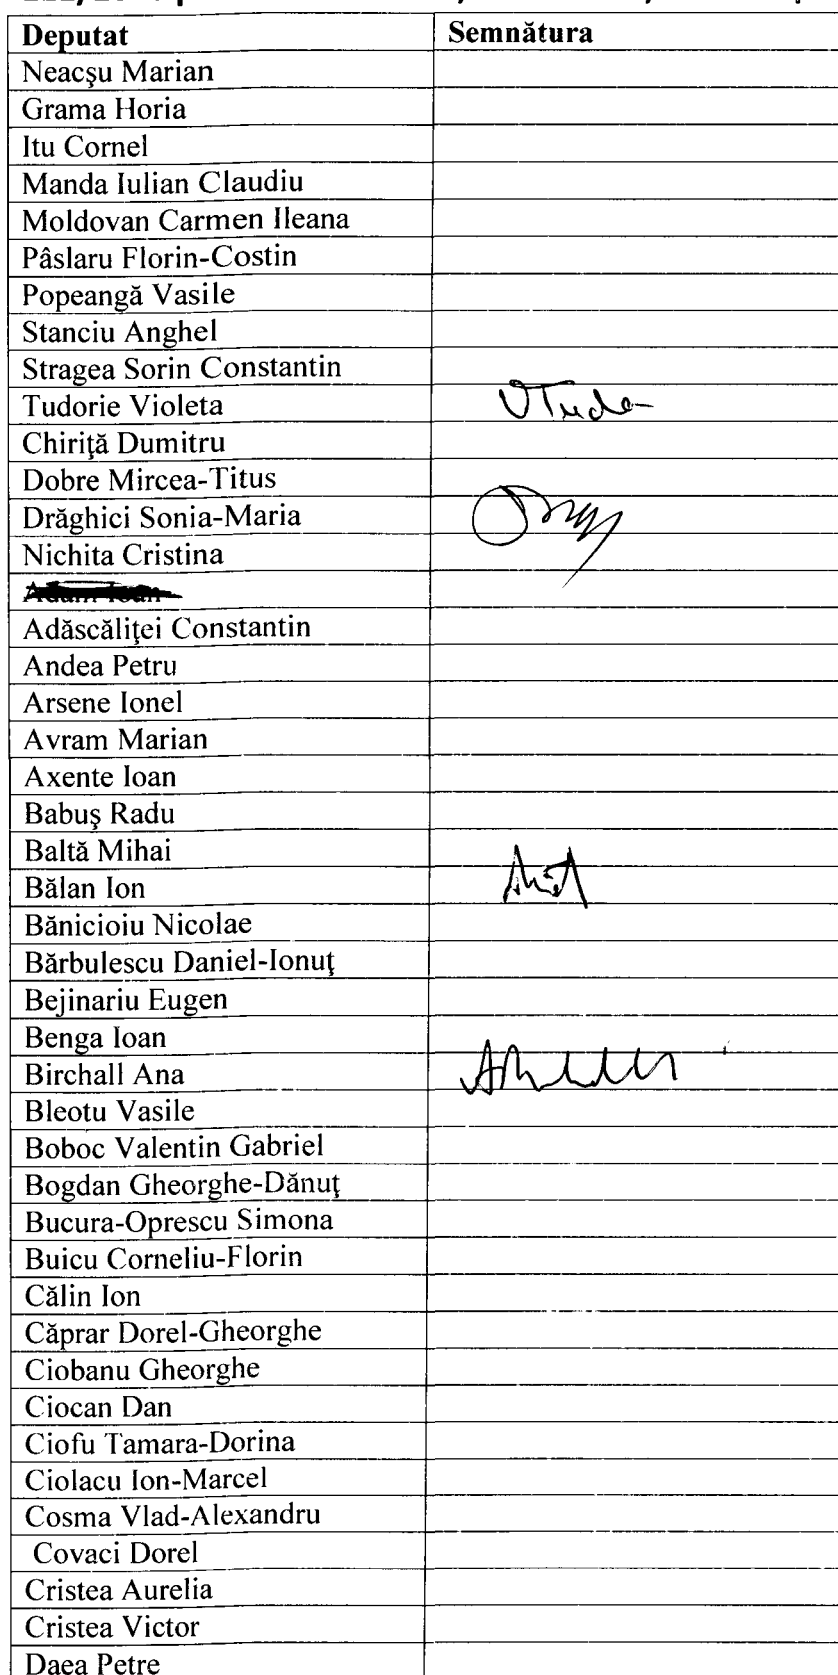 Deputat Semnătura
Neacşu Marian
Grama Horia
Itu Cornel
Manda Iulian Claudiu
Moldovan Carmen Ileana
Pâslaru Florin-Costin
Popeangă Vasile
Stanciu Anghel
Stragea Sorin Constantin
Tudorie Violeta
Chiriţă Dumitru
Dobre Mircea-Titus
Drăghici Sonia-Maria
Nichita Cristina
Adăscăliţei Constantin
Andea Petru
Arsene Ionel
Avram Marian
Axente Ioan
Babuş Radu
Baltă Mihai
Bălan Ion
Bănicioiu Nicolae
Bărbulescu Daniel-Ionuţ
Bejinariu Eugen
Benga Ioan
Birchall Ana
Bleotu Vasile
Boboc Valentin Gabriel
Bogdan Gheorghe-Dănuţ
Bucura-Oprescu Simona
Buicu Corneliu-Florin
Călin Ion
Căprar Dorel-Gheorghe
Ciobanu Gheorghe
Ciocan Dan
Ciofu Tamara-Dorina
Ciolacu Ion-Marcel
Cosma Vlad-Alexandru
Covaci Dorel
Cristea Aurelia
Cristea Victor
Daea Petre